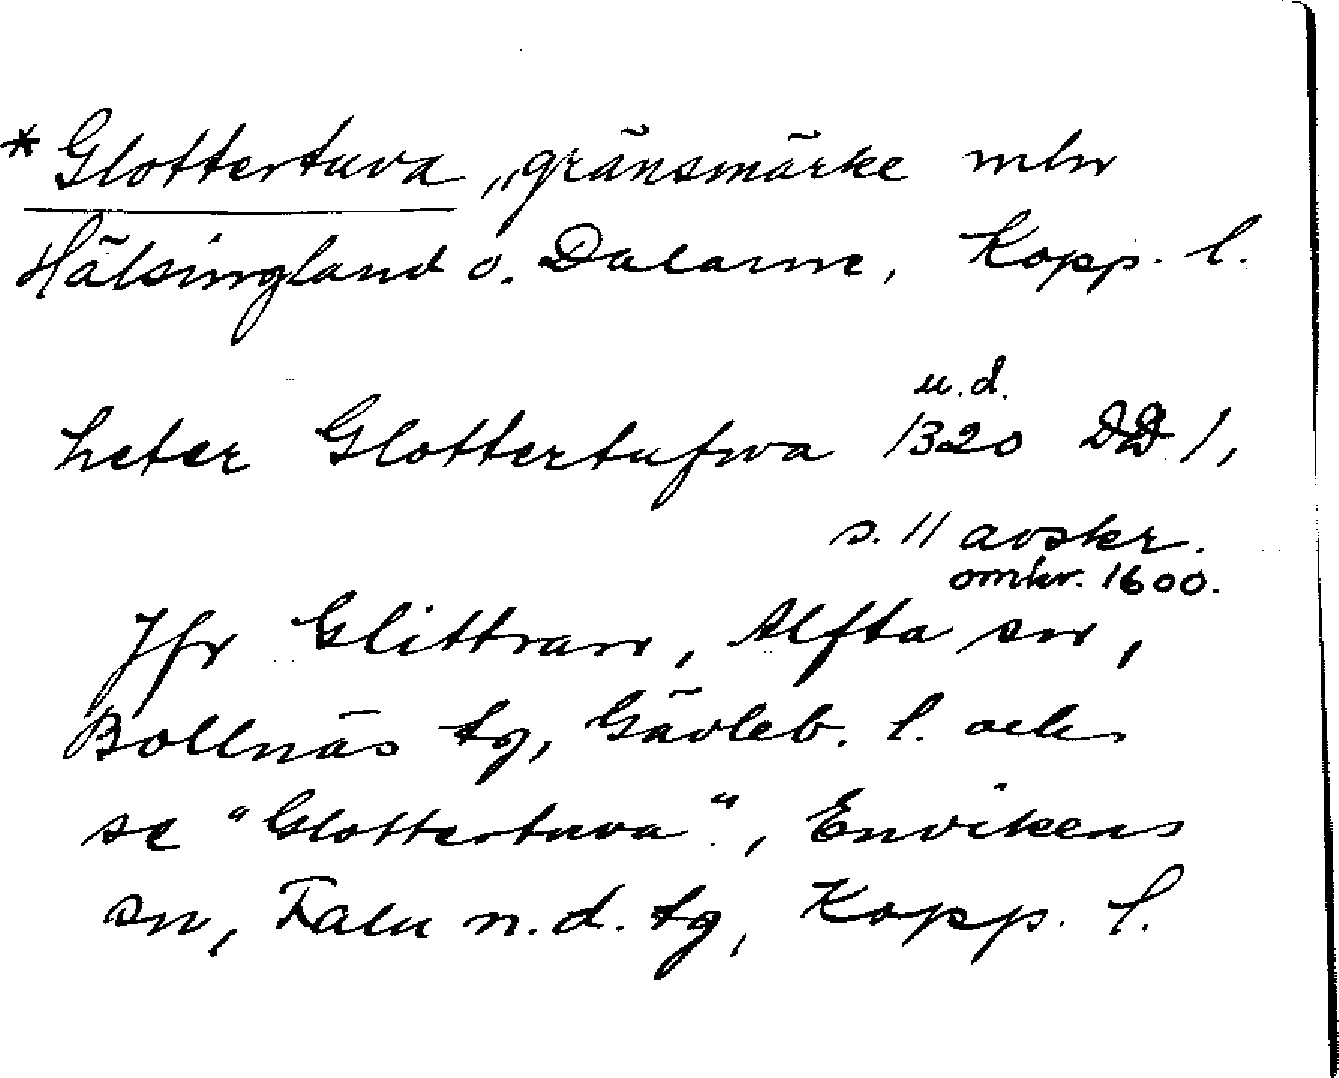 *Glottertuva, „gränsmärke mln
Hälsingland o. Dalarne, Kopp. l.
u.d.
heter Glottertufwa 1320 DD 1,
s. 11 avskr.
omkr. 1600.
Jfr Glittran, Alfta sn,
Bollnäs tg, Gävleb. l. och
se "Glottertuva", Envikens
sn, Falu n.d. tg, Kopp. l.